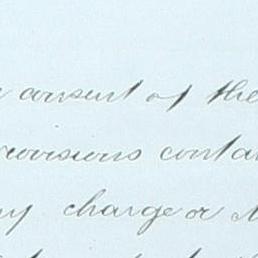 consent of the
provisions contai
ny charge or